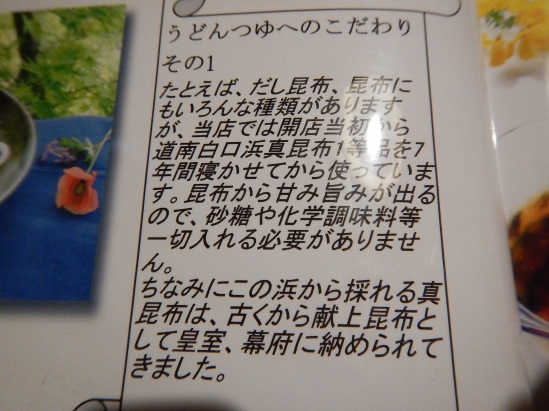 うどんつゆへのこだわり
その1
たとえば、だし昆布、昆布に
もいろんな種類があります
が、当店では開店当初から
道南白口浜真昆布1等品を7
年間寝かせてから使っていま
す。昆布から甘み旨みが出る
ので、砂糖や化学調味料等
一切入れる必要がありませ
ん。
ちなみにこの浜から採れる真
昆布は、古くから献上昆布と
して皇室、幕府に納められて
きました。